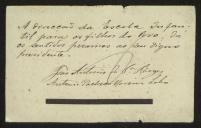 A direcção da Escola Infan-
til para os filhos do Povo, dá
os sentidos pezames ao seu digno
presidente.
João Antonio de
Antonio